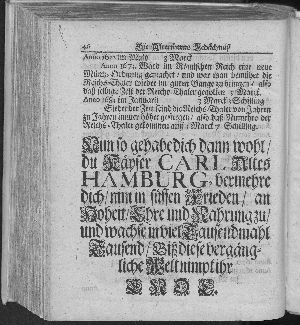 46
Anno 1622 im Majo 3 Marck
Anno 1623. Ward im Römischen Reich eine neue
Müntz-Ordnung gemachet / und war man bemühet die
Reichs-Thaler wieder in guten Gang zu bringen / also
daß selbige Zeit der Reichs-Thaler gegolten 3 Marck.
Anno im Januarii 3 Marck 1 Schilling
Sieder der Zeit sind die Reichs-Thaler von Jahren
zu Jahren immer höher gestiegen / also daß Nunmehro der
Reichs-Thaler gekommen auff 3 Marck 7 Schilling.
Nun so gehabe dich dann wohl /
du Käyser CARL. Altes
HAMBURG / vermehre
dich / nim in süssen Frieden / an
Hoheit / Ehre und Nahrung zu /
und wachse in viel Tausendmahl
Tausend / Biß diese vergäng-
liche Welt nimpt ihr
ENDE.